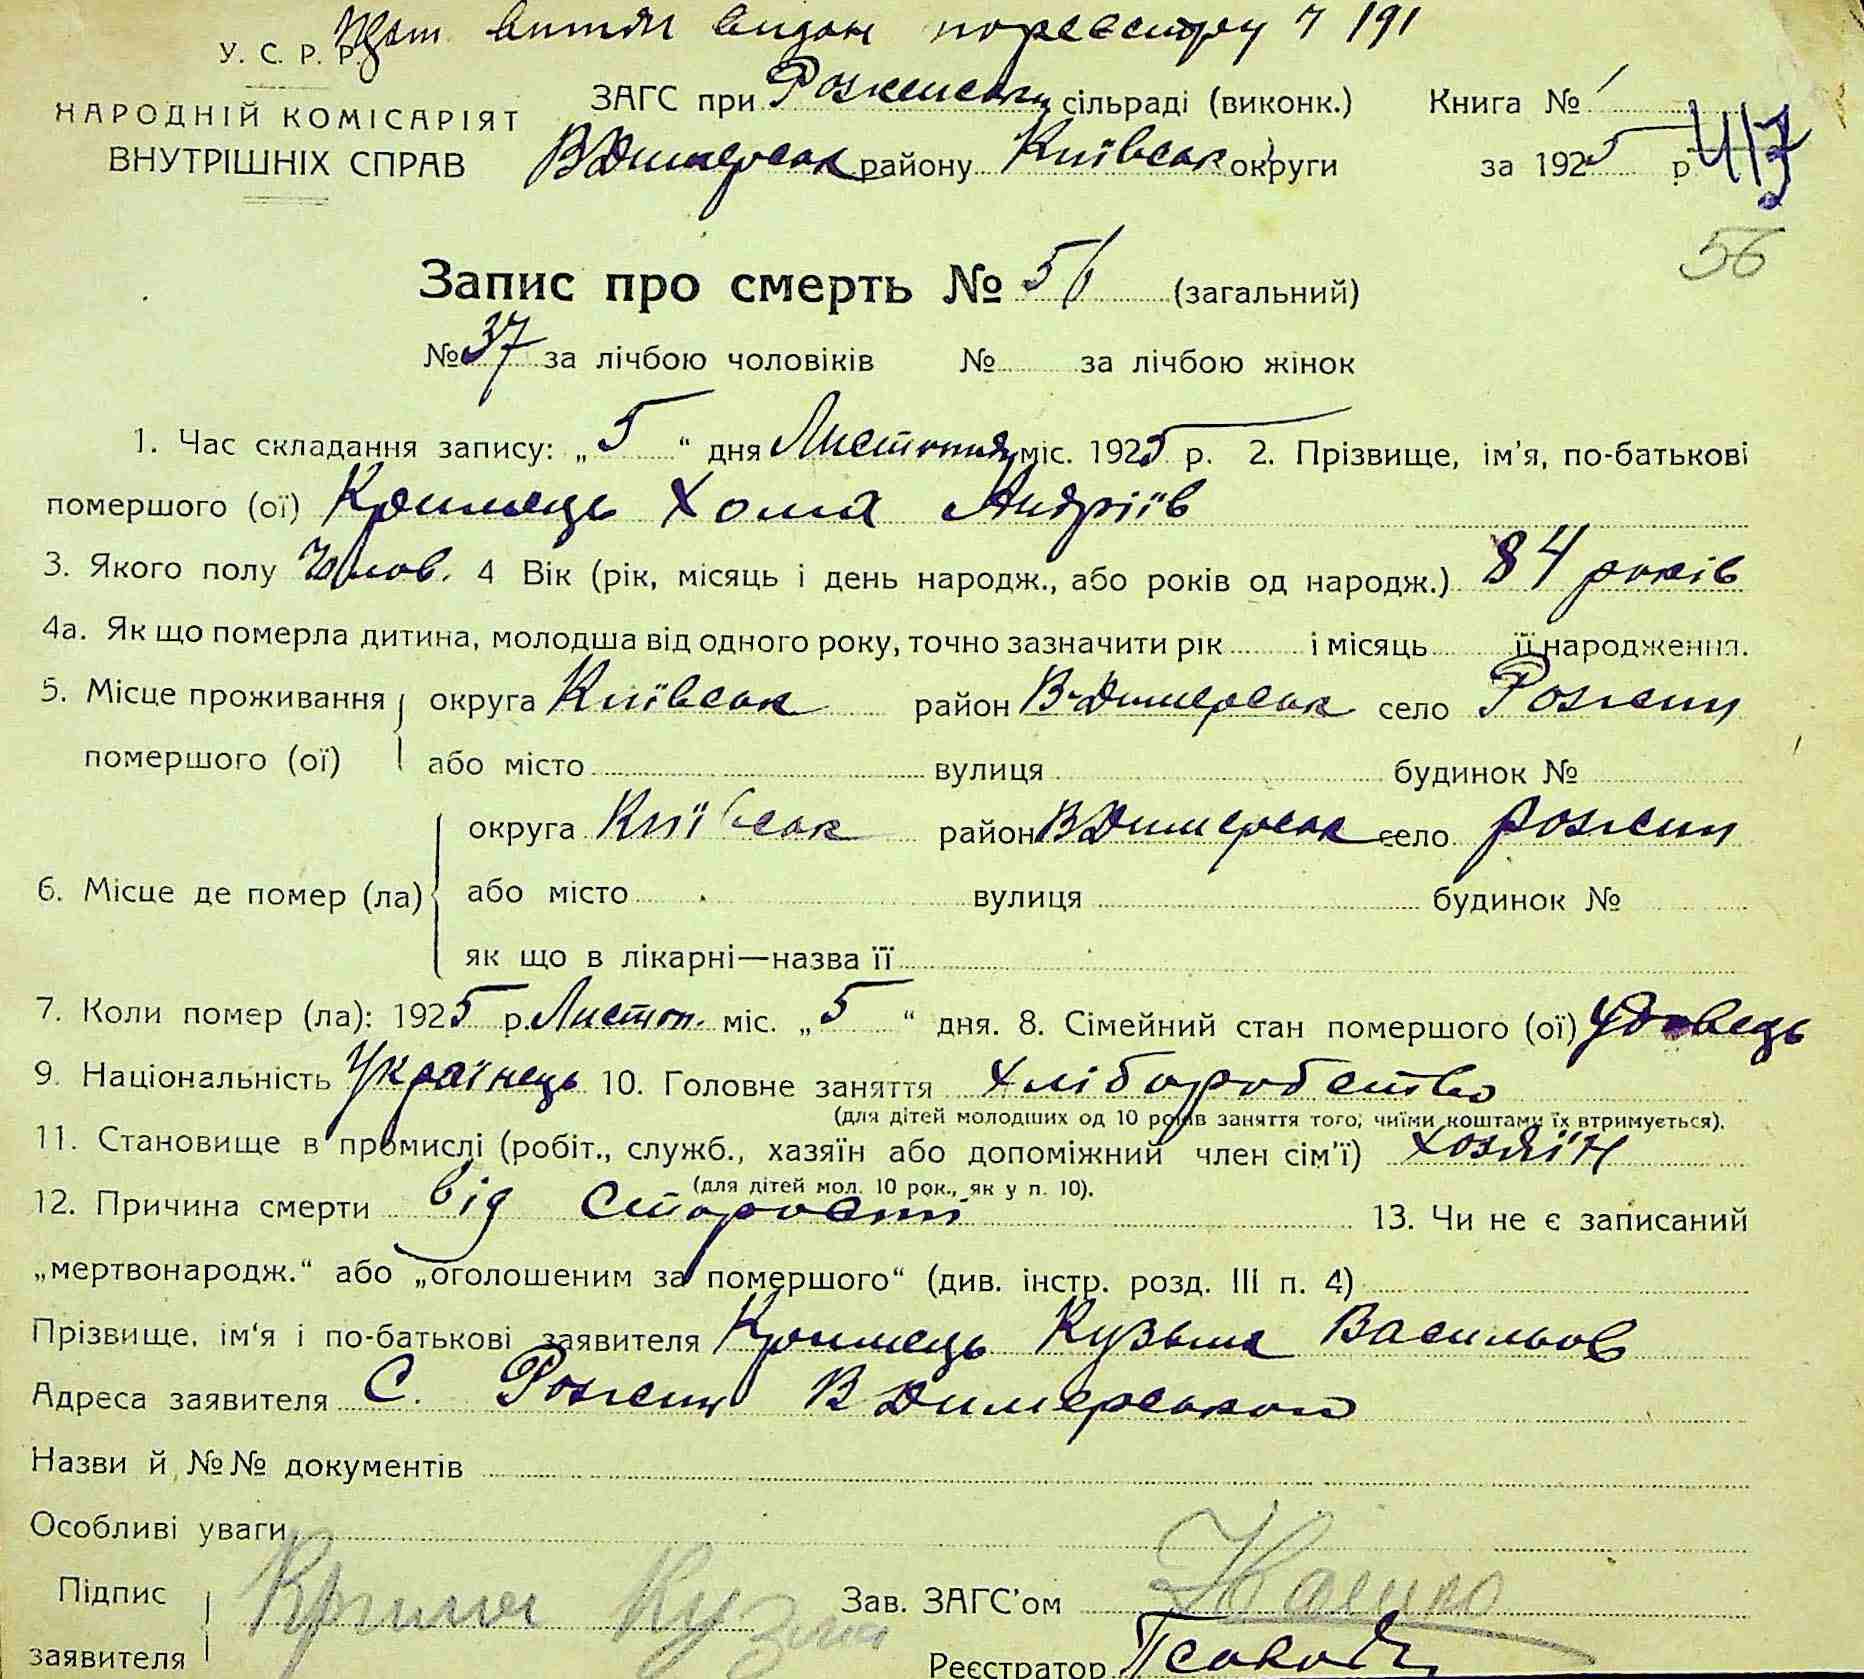 витяг видан по реєстру 7 191
У. С. Р. Р.
НАРОДНІЙ КОМІСАРІЯТ
ВНУТРІШНІХ СПРАВ
ЗАГС при сільраді (виконк.) Книга № 1
В Димерськ району Київськ округи за 1925 р
56
Запис про смерть № 56 (загальний)
№ 37 за лічбою чоловіків № за лічбою жінок
1. Час складання запису: „5“ дня Листопада міс. 1925 р. 2. Прізвище, ім'я, по-батькові
помершого (ої) Кримець Хома Андріїв
3. Якого полу Чолов. 4 Вік (рік, місяць і день народж., або років од народж.) 84 років
4а. Як що померла дитина, молодша від одного року, точно зазначити рік і місяць її народження.
5. Місце проживання округа Київськ район В-Димерськ село Рожни
помершого (ої) або місто вулиця будинок №
округа Київськ район В Димерськ село Рожни
6. Місце де помер (ла) або місто вулиця будинок №
як що в лікарні—назва її
7. Коли помер (ла): 1925 р. Листоп. міс. „5“ дня. 8. Сімейний стан помершого (ої) Удовець
9. Національність Українець 10. Головне заняття Хліборобство
(для дітей молодших од 10 років заняття того, чиїми коштами їх втримується).
11. Становище в промислі (робіт., служб., хазяїн або допоміжний член сім'ї) Хозяїн
(для дітей мол. 10 рок., як у п. 10).
12. Причина смерти від старости 13. Чи не є записаний
„мертвонародж.“ або „оголошеним за помершого“ (див. інстр. розд. III п. 4)
Прізвище, ім'я і по-батькові заявителя Кримець Кузьма Васильов
Адреса заявителя С. Рожни В Димерського
Назви й №№ документів
Особливі уваги
Підпис
заявителя
Зав. ЗАГС'ом
Реєстратор